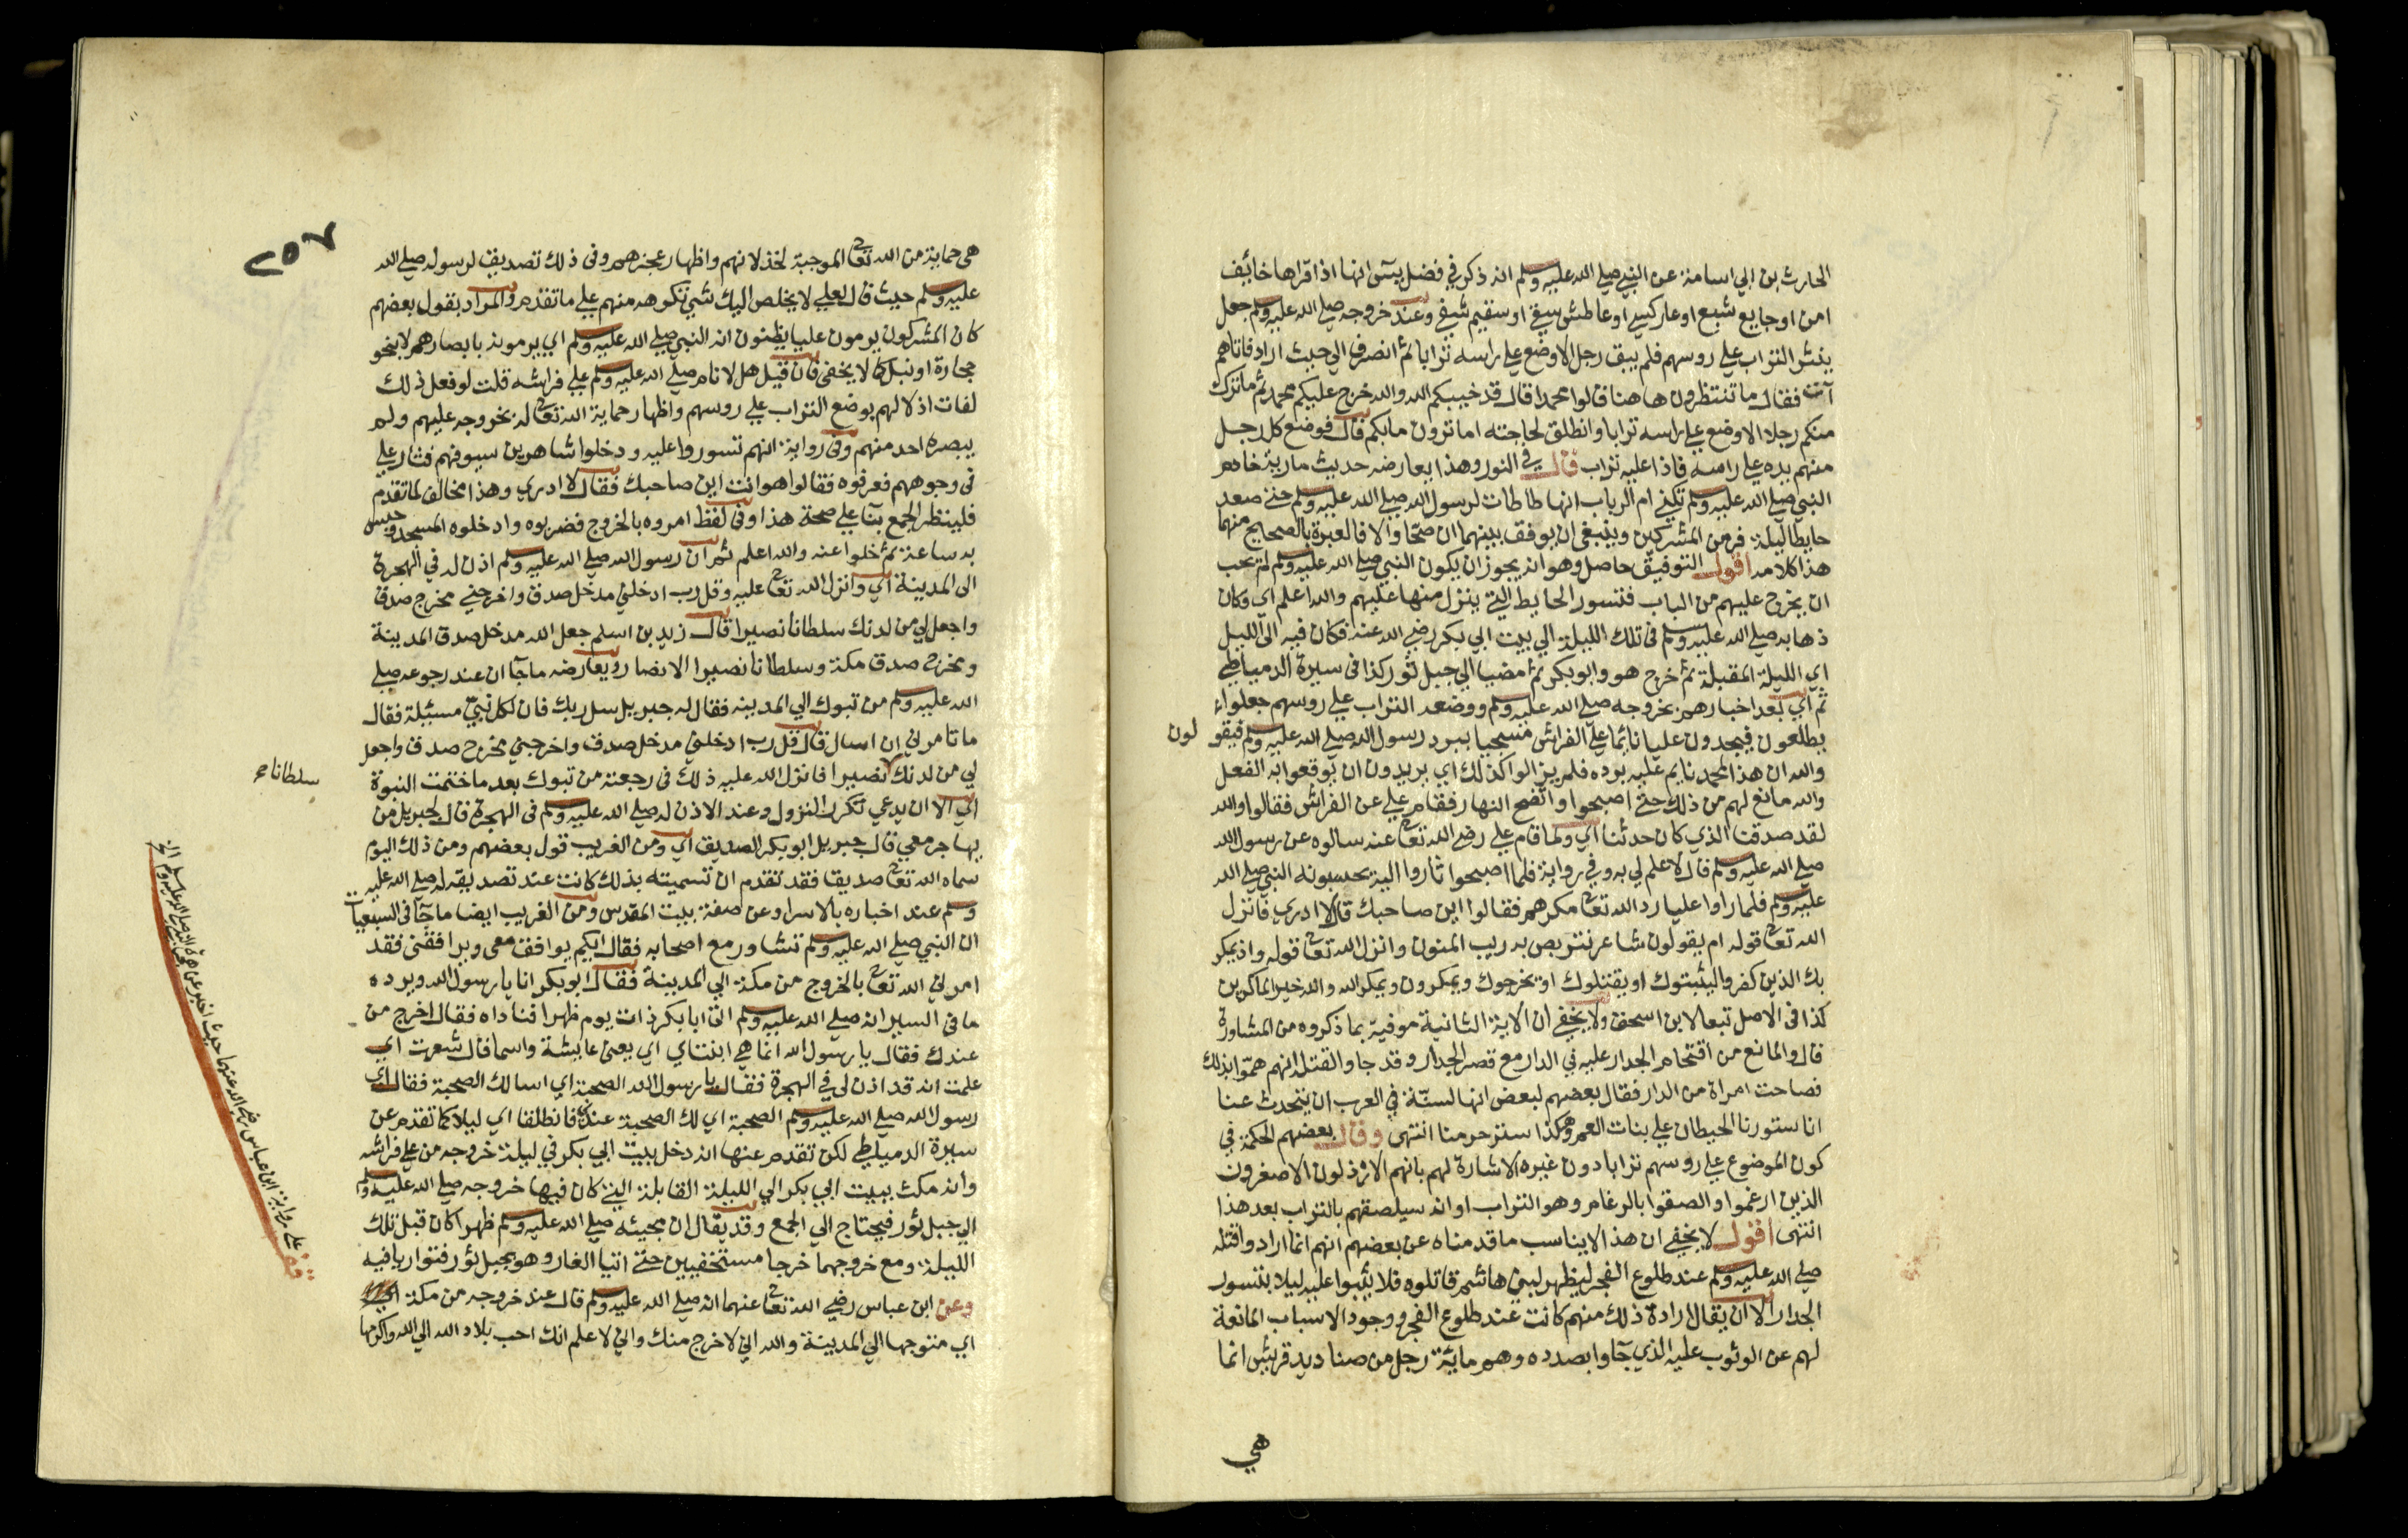 الحارث بن ابي اسامة عن النبي صلي الله عليه وسلم انه ذكر في فضل يسٓ انها اذا قراها خائف
امن او جايع شبع او عار كسي او عاطش سقي او سقيم شفي وعند خروجه صلي الله عليه وسلم جعل
ينثر التراب علي روسهم فلم يبق رجل الا وضع علي راسه ترابا ثم انصرف الي حيث اراد فاتاهم
آت فقال ما تنتظرون ها هنا قالوا محمدا قال قد خيبكم الله والله خرج عليكم محمد ثم ما ترك
منكم رجلا الا وضع علي راسه ترابا وانطلق لحاجته اما ترون ما بكم قال فوضع كل رجل
منهم يده علي راسه فاذا عليه تراب قال في النور وهذا يعارضه حديث مارية خادم
النبي صلي الله عليه وسلم تكني ام الرباب انها طاطات لرسول الله صلي الله عليه وسلم حتي صعد
حايطا ليلة فر من المشركين وينبغي ان يوفق بينهما ان صحا والا فالعبرة بالصحيح منهما
هذا كلامه اقول التوفيق حاصل وهو انه يجوز ان يكون النبي صلي الله عليه وسلم لم يحب
ان يخرج عليهم من الباب فتسور الحايط التي ينزل منها عليهم والله اعلم اي وكان
ذهابه صلي الله عليه وسلم في تلك الليلة الي بيت ابي بكر رضي الله عنه فكان فيه الي الليل
اي الليلة المقبلة ثم خرج هو وابو بكر ثم مضيا الي جبل ثور كذا في سيرة الدمياطي
ثم اي بعد اخبارهم بخروجه صلي الله عليه وسلم ووضعه التراب علي روسهم جعلوا
يطلعون فيجدون عليا نائما علي الفراش مسجيا ببرد رسول الله صلي الله عليه وسلم فيقو لون
والله ان هذا لمحمد نايم عليه برده فلم يزالوا كذلك اي يريدون ان يوقعوا به الفعل
والله مانع لهم من ذلك حتي اصبحوا واتضح النهار فقام علي عن الفراش فقالوا والله
لقد صدقنا الذي كان حدثنا اي ولما قام علي رضي الله تعالي عنه سالوه عن رسول الله
صلي الله عليه وسلم قال لا علم لي به وفي رواية فلما اصبحوا ثاروا اليه يحسبونه النبي صلي الله
عليه وسلم فلما راوا عليا رد الله تعالي مكرهم فقالوا اين صاحبك قال لا ادري فانزل
الله تعالي قوله ام يقولون شاعر نتربص به ريب المنون وانزل الله تعالي قوله واذ يمكر
بك الذين كفروا ليثبتوك او يقتلوك او يخرجوك ويمكرون ويمكر الله والله خير الماكرين
كذا في الاصل تبعا لابن اسحق ولا يخفي ان الاية الثانية موفية بما ذكروه من المشاورة
قال والمانع من اقتحام الجدار عليه في الدار مع قصر الجدار وقد جاوا لقتله انهم هموا بذلك
فصاحت امراة من الدار فقال بعضهم لبعض انها لسبة في العرب ان يتحدث عنا
انا ستورنا الحيطان علي بنات العم وهكذا ستر حرمنا انتهي وقال بعضهم الحكمة في
كون الموضوع علي روسهم ترابا دون غيره الاشارة لهم بانهم الارذلون الاصغرون
الذين ارغموا والصقوا بالرغام وهو التراب او انه سيلصقهم بالتراب بعد هذا
انتهي اقول لا يخفي ان هذا لا يناسب ما قدمناه عن بعضهم انهم انما ارادوا قتله
صلي الله عليه وسلم عند طلوع الفجر ليظهر لبني هاشم قاتلوه فلا يثبوا عليه ليلا بتسور
الجدار الا ان يقال ارادة ذلك منهم كانت عند طلوع الفجر ووجود الاسباب المانعة
لهم عن الوثوب عليه الذي جآوا بصدده وهم ماية رجل من صناديد قريش انما
هي
٢٥٧
هي حماية من الله تعالي الموجبة لخذلانهم واظهار عجزهم وفي ذلك تصديق لرسوله صلي الله
عليه وسلم حيث قال لعلي لا يخلص اليك شي تكرهه منهم علي ما تقدم والمراد بقول بعضهم
كان المشركون يرمون عليا يظنون انه النبي صلي الله عليه وسلم اي يرمونه بابصارهم لا بنحو
حجارة او نبل كما لا يخفي فان قيل هل لا نام صلي الله عليه وسلم علي فراشه قلت لو فعل ذلك
لفات اذلالهم بوضع التراب علي روسهم واظهار حماية الله تعالي له بخروجه عليهم ولم
يبصره احد منهم وفي رواية انهم تسوروا عليه ودخلوا شاهرين سيوفهم فثار علي
في وجوههم فعرفوه فقالوا هو انت اين صاحبك فقال لا ادري وهذا مخالف لما تقدم
فلينظر الجمع بنآ علي صحة هذا وفي لفظ امروه بالخروج فضربوه وادخلوه المسجد وحبس
به ساعة ثم خلوا عنه والله اعلم ثم ان رسول الله صلي الله عليه وسلم اذن له في الهجرة
الي المدينة اي وانزل الله تعالي عليه وقل رب ادخلني مدخل صدق واخرجني مخرج صدق
واجعل لي من لدنك سلطانا نصيرا قال زيد بن اسلم جعل الله مدخل صدق المدينة
ومخرج صدق مكة وسلطانا نصيرا الانصار ويعارضه ما جآ ان عند رجوعه صلي
الله عليه وسلم من تبوك الي المدينه فقال له جبريل سل ربك فان لكل نبي مسئلة فقال
ما تامرني ان اسال قال قل رب ادخلني مدخل صدق واخرجني مخرج صدق واجعل
لي من لدنك نصيرا فانزل الله عليه ذلك في رجعته من تبوك بعد ما ختمت النبوة
سلطانا صح
اي الا ان يدعي تكرر النزول وعند الاذن له صلي الله عليه وسلم في الهجرة قال لجبريل من
يهاجر معي قال جبريل ابو بكر الصديق اي ومن الغريب قول بعضهم ومن ذلك اليوم
سماه الله تعالي صديقا فقد تقدم ان تسميته بذلك كانت عند تصديقه له صلي الله عليه
وسلم عند اخباره بالاسرا وعن صفة بيت المقدس ومن الغريب ايضا ما جآ في السبعيات
ان النبي صلي الله عليه وسلم تشاور مع اصحابه فقال ايكم يوافق معي ويرافقني فقد
امرني الله تعالي بالخروج من مكة الي المدينة فقال ابو بكر انا يا رسول الله ويرده
ما في السير انه صلي الله عليه وسلم اتي ابا بكر ذات يوم ظهرا فناداه فقال اخرج من
عندك فقال يا رسول الله انما هي ابنتاي اي يعني عايشة واسما قال شعرت اي
علمت انه قد اذن لي في الهجرة فقال يا رسول الله الصحبة اي اسالك الصحبة فقال اي
رسول الله صلي الله عليه وسلم الصحبة اي لك الصحبة عندي فانطلقا اي ليلا كما تقدم عن
سيرة الدمياطي لكن تقدم عنها انه دخل بيت ابي بكر في ليلة خروجه من علي فراشه
وانه مكث ببيت ابي بكر الي الليلة القابلة التي كان فيها خروجه صلي الله عليه وسلم
الي جبل ثور فيحتاج الي الجمع وقد يقال ان مجيئه صلي الله عليه وسلم ظهرا كان قبل تلك
الليلة ومع خروجهما خرجا مستخفيين حتي اتيا الغار وهو بجبل ثور فتواريا فيه
وعن ابن عباس رضي الله تعالي عنهما انه صلي الله عليه وسلم قال عند خروجه من مكة
اي متوجها الي المدينة والله اني لاخرج منك واني لاعلم انك احب بلاد الله الي الله واكرمها
علي رواية ابن عباس رضي الله عنهما حديث